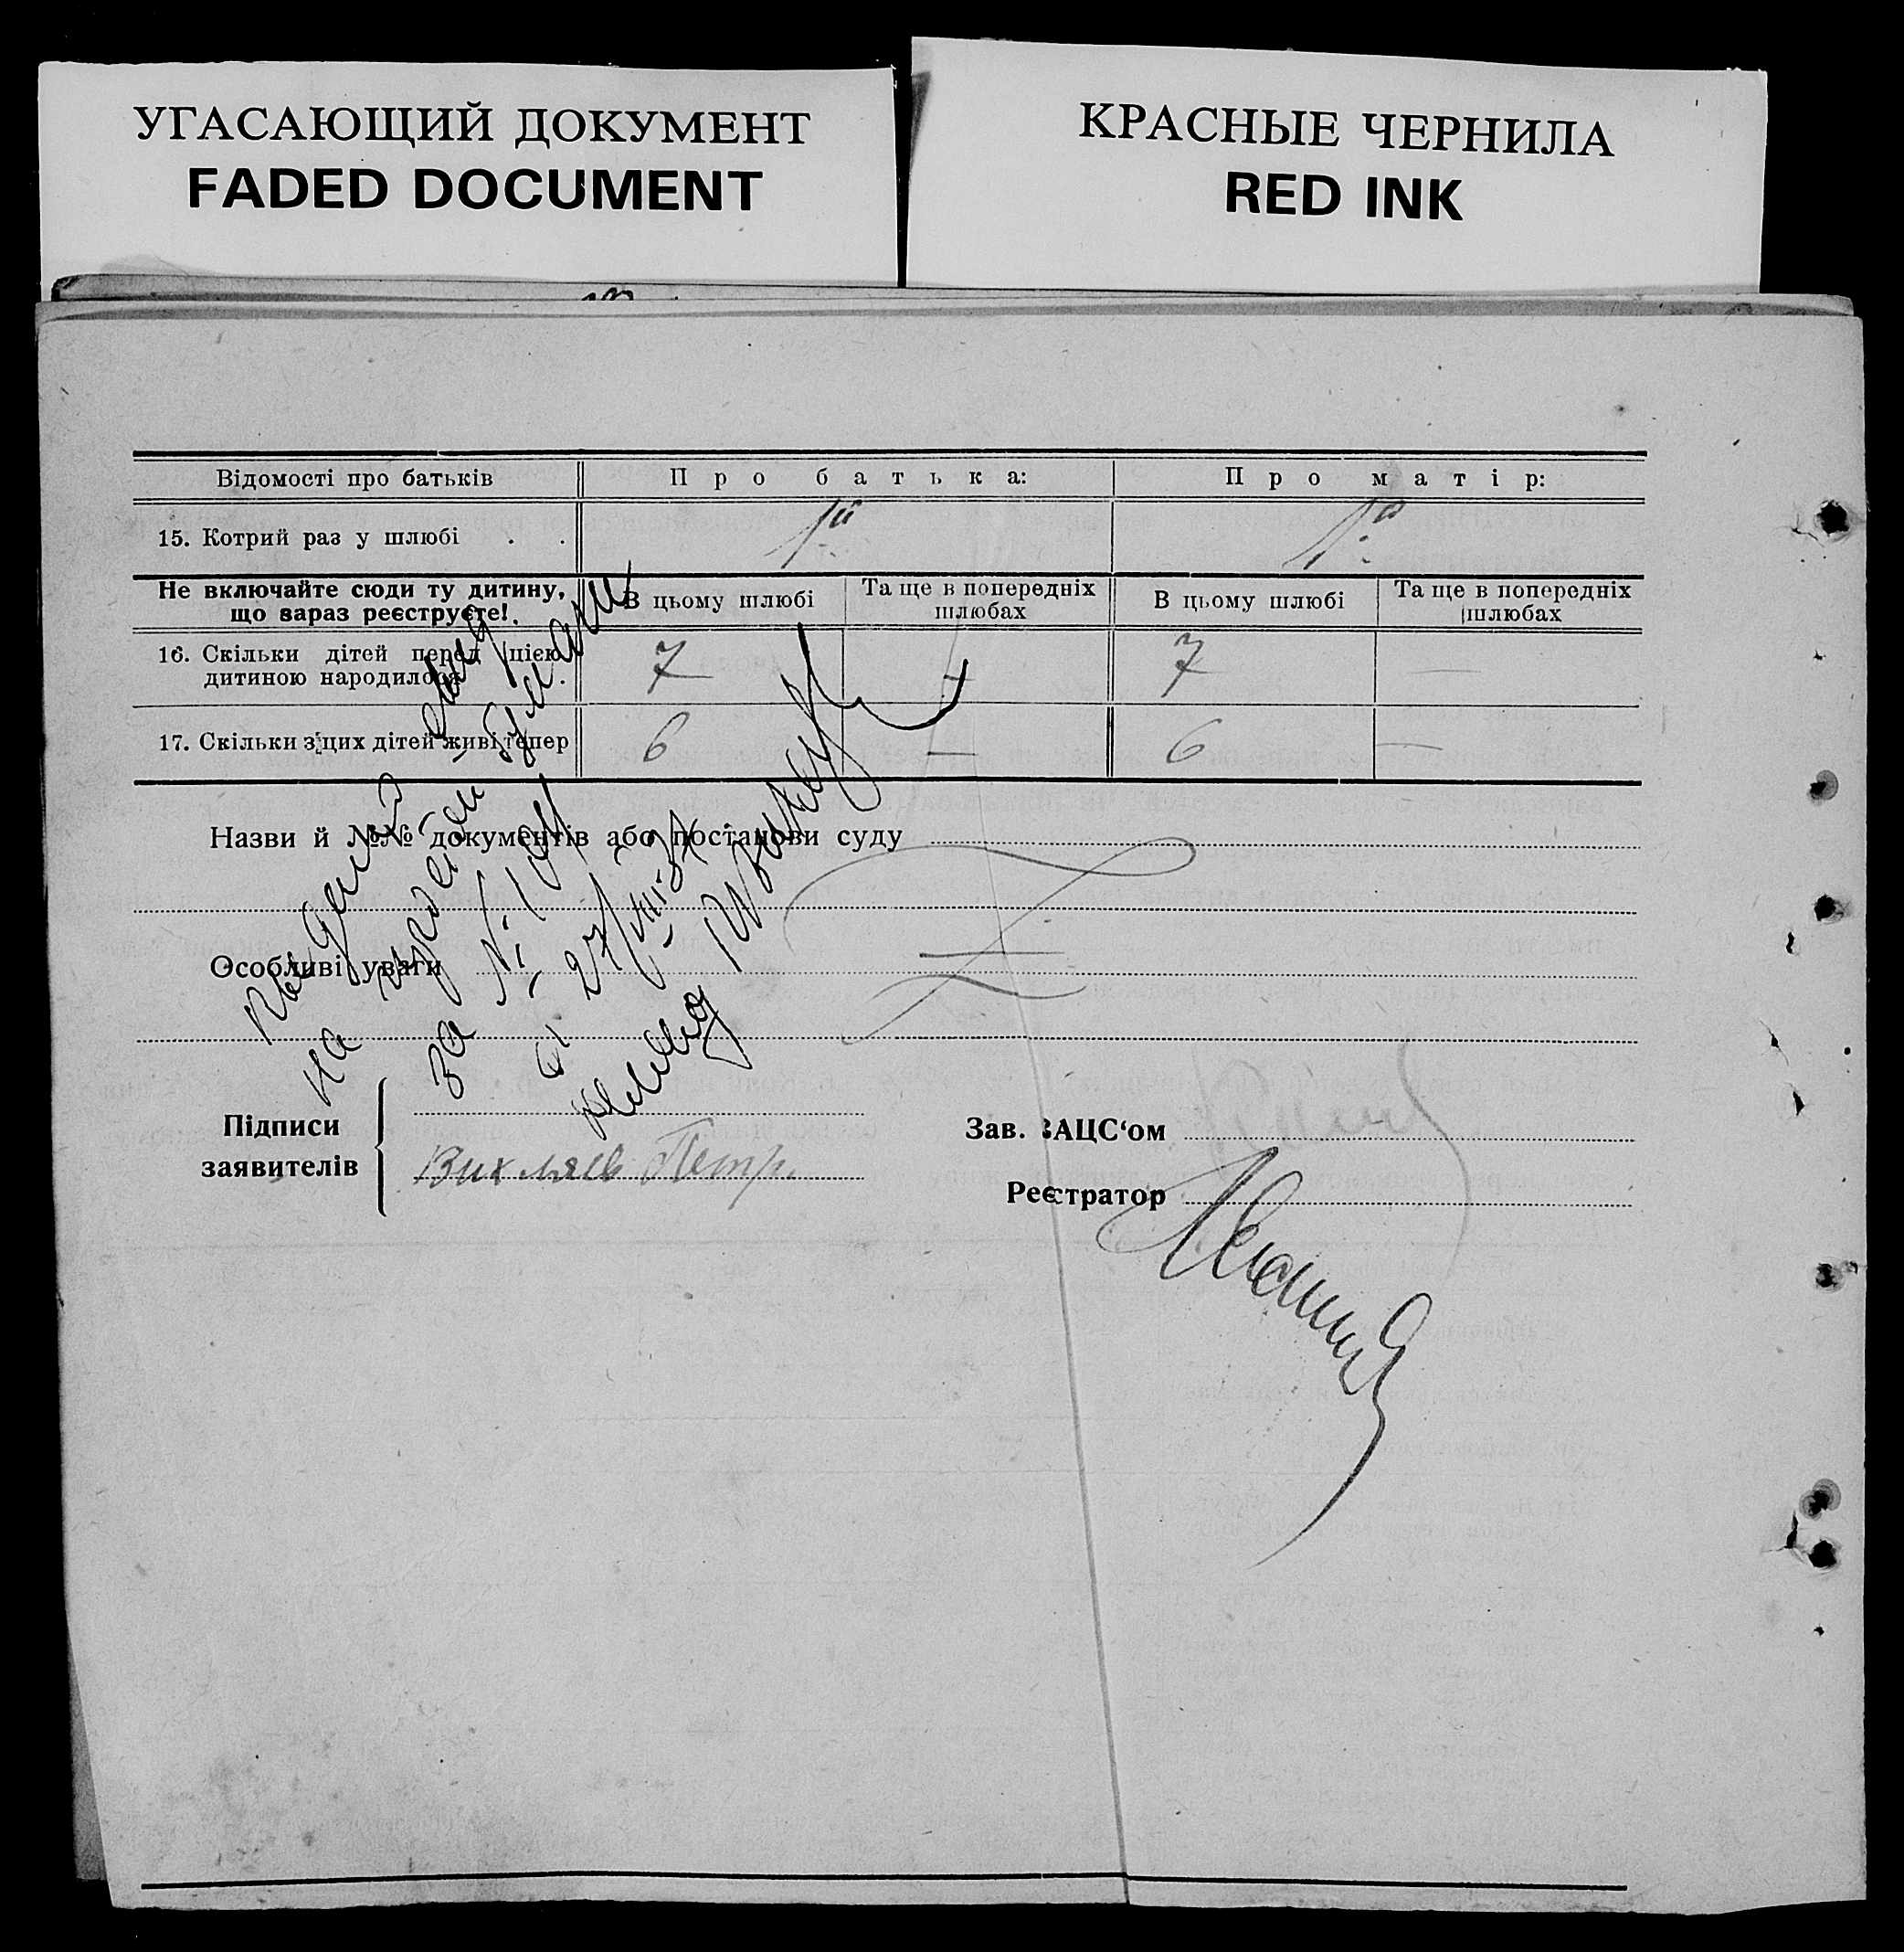 УГАСАЮЩИЙ ДОКУМЕНТ
FADED DOCUMENT
КРАСНЫЕ ЧЕРНИЛА
RED INK
Відомості про батьків
Про батька:
Про матір:
15. Котрий раз у шлюбі . .
1й
1а
Не включайте сюди ту дитину,
що зараз реєструєте!.
В цьому шлюбі
Та ще в попередніх
шлюбах
В цьому шлюбі
Та ще в попередніх
шлюбах
16. Скільки дітей перед цією
дитиною народилося .
7
—
7
—
17. Скільки з цих дітей живі тепер
6
—
6
—
Назви й №№ документів або постанови суду
Особливі уваги
на
за №
27/VIII-37
Підписи
заявителів
Вихляев Петр.
Зав. ЗАЦС‘ом
Реєстратор